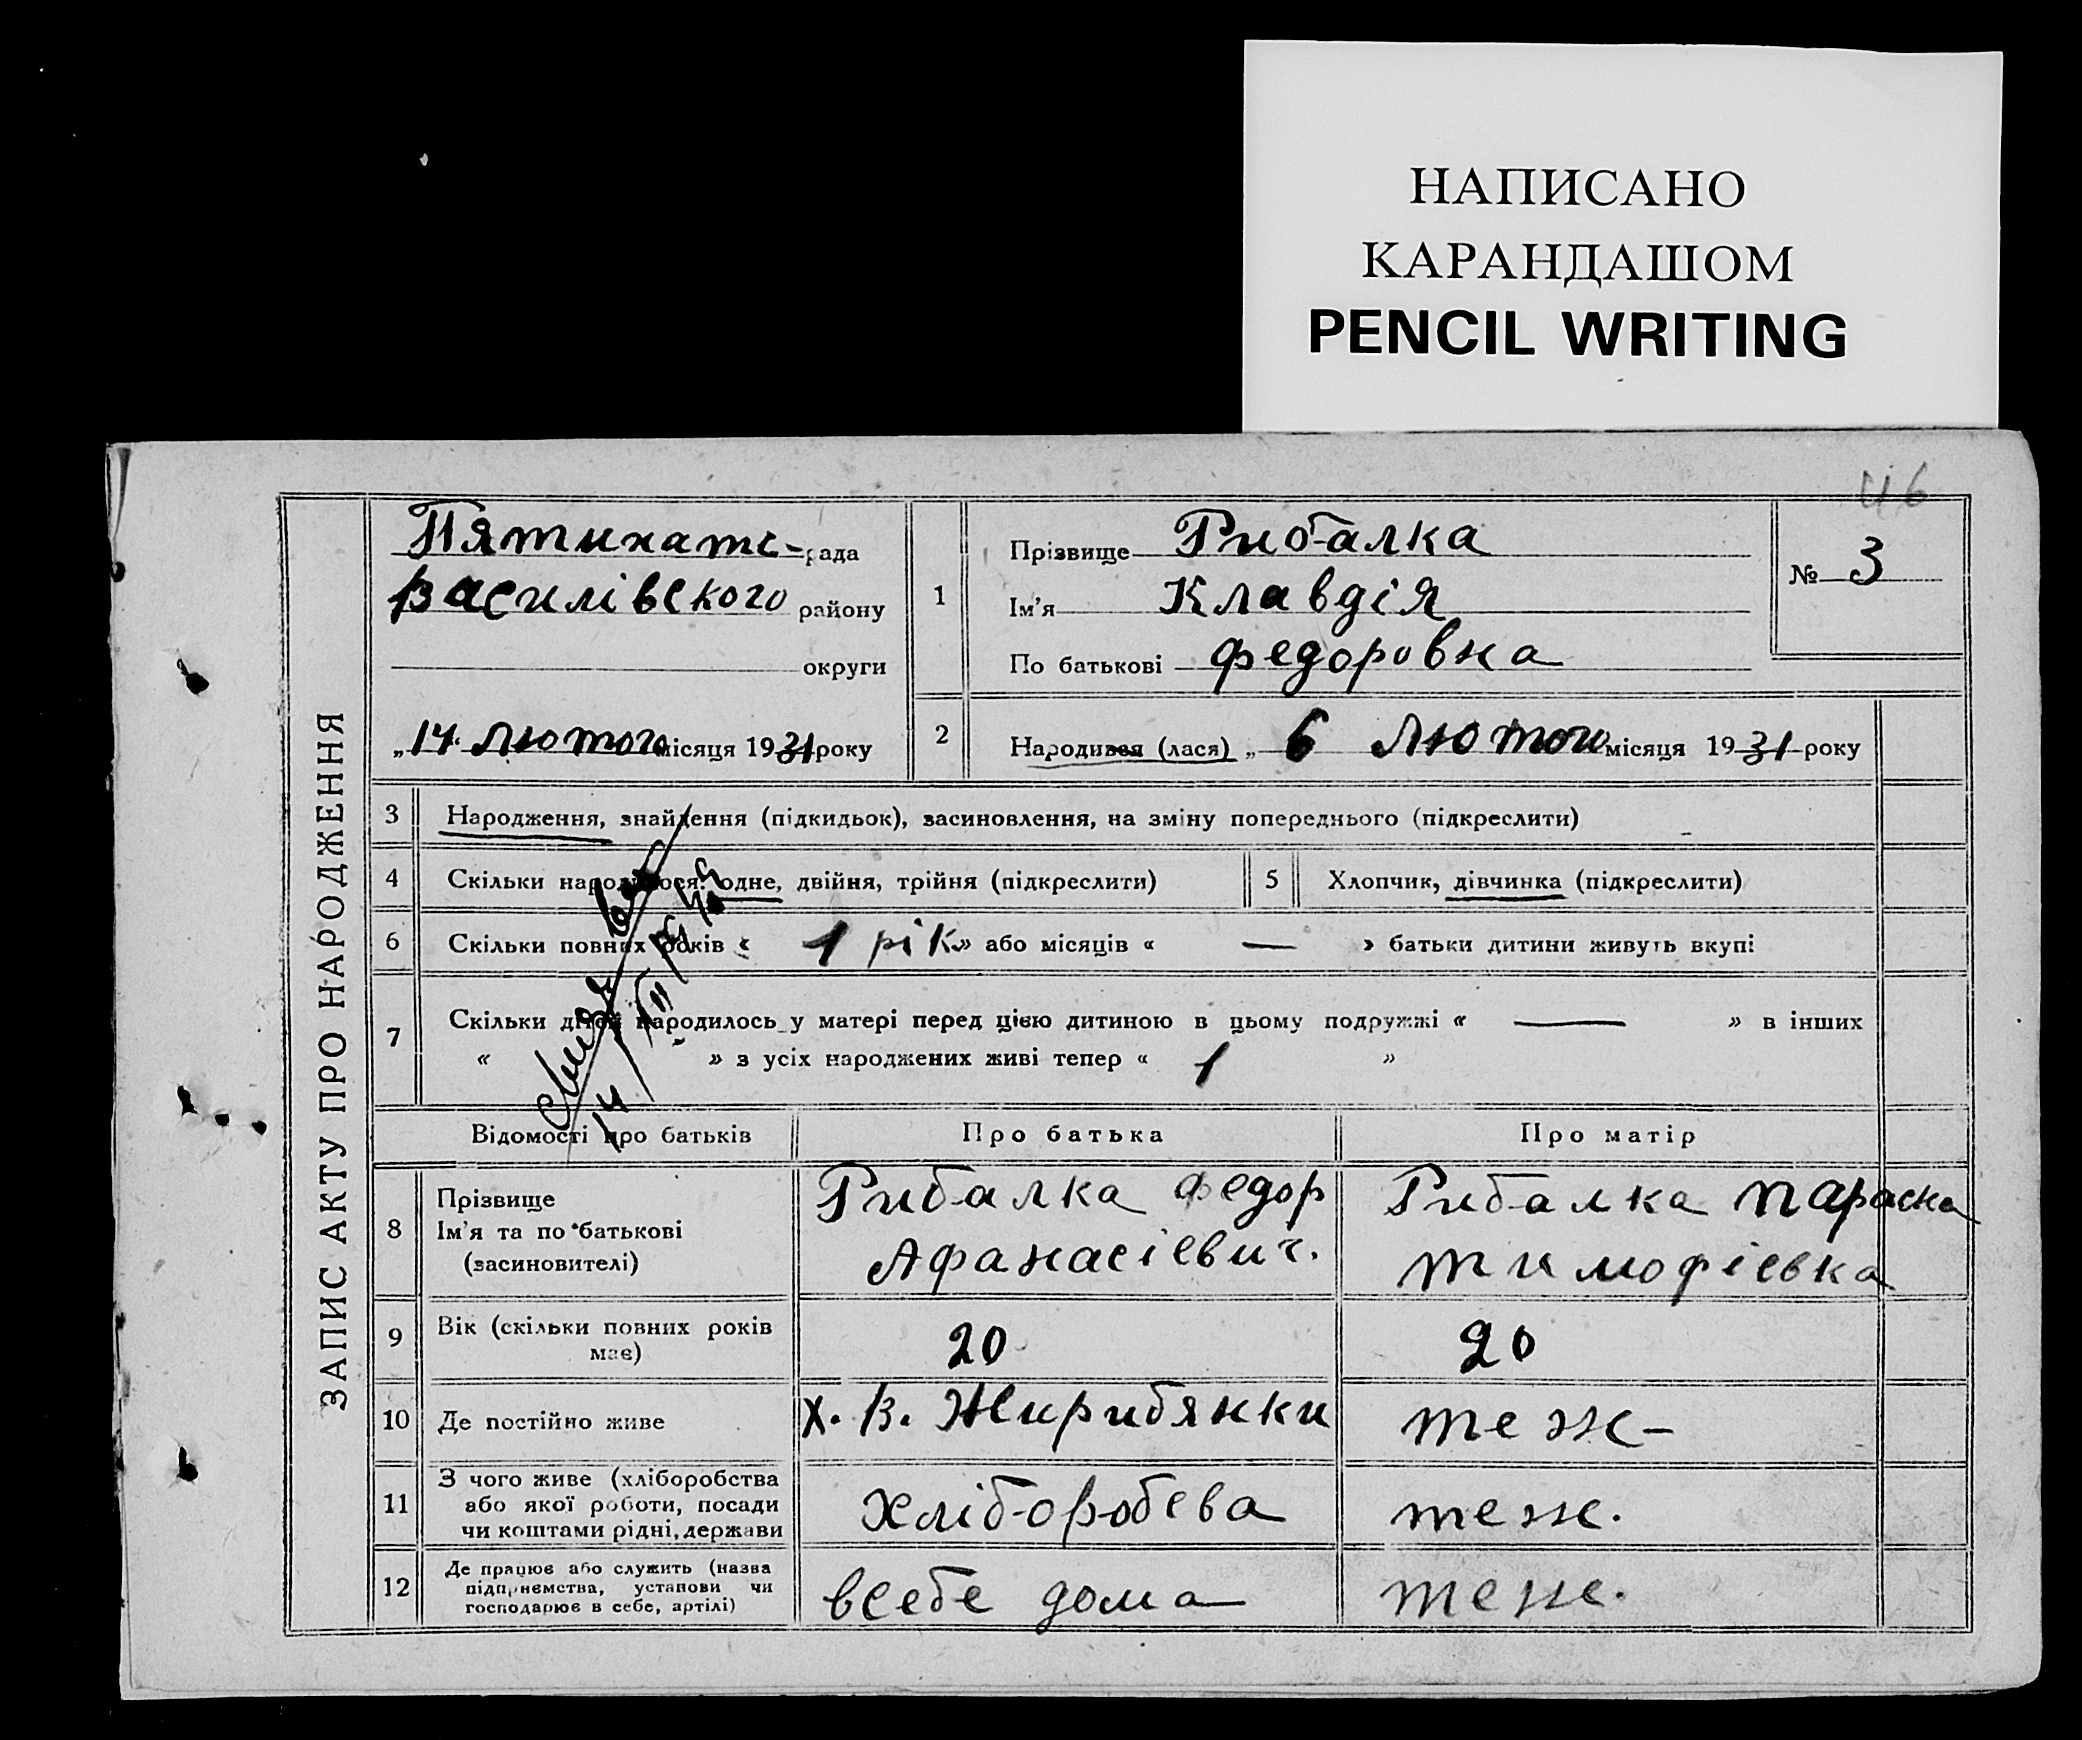 НАПИСАНО
КАРАНДАШОМ
PENCIL WRITING
46
ЗАПИС АКТУ ПРО НАРОДЖЕННЯ
Пятихатс- рада
Василівского району
округи
„14“ Лютого місяця 1931 року
1
Прізвище Рибалка
Ім'я Клавдія
По батькові Федоровна
№ 3
2 Народився (лася) „ 6 Лютого місяця 1931 року
3 Народження, знайдення (підкидьок), засиновлення, на зміну попереднього (підкреслити)
4 Скільки народилося: одне, двійня, трійня (підкреслити) 5 Хлопчик, дівчинка (підкреслити)
6 Скільки повних років « 1 рік » або місяців « — » батьки дитини живуть вкупі:
7 Скільки дітей народилось у матері перед цією дитиною в цьому подружжі « — » в інших
« » з усіх народжених живі тепер « 1 »
Відомості про батьків Про батька Про матір
8 Прізвище
Ім'я та по батькові
(засиновителі)
Рибалка Федор
Афанасієвич.
Рибалка Параска
Тимофієвка
9 Вік (скільки повних років
має)
20 20
10 Де постійно живе х. В. Жирибянки теж-
11 З чого живе (хліборобства
або якої роботи, посади
чи коштами рідні, держави
Хліборобсва теж.
12 Де працює або служить (назва
підприємства, установи чи
господарює в себе, артілі)
всебе дома теж.